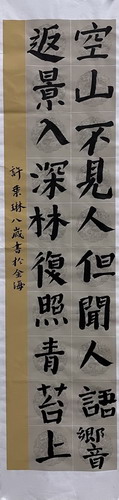 空山不見人但聞人語響
返景入深林復照青苔上
許葉琳八歲書於全海